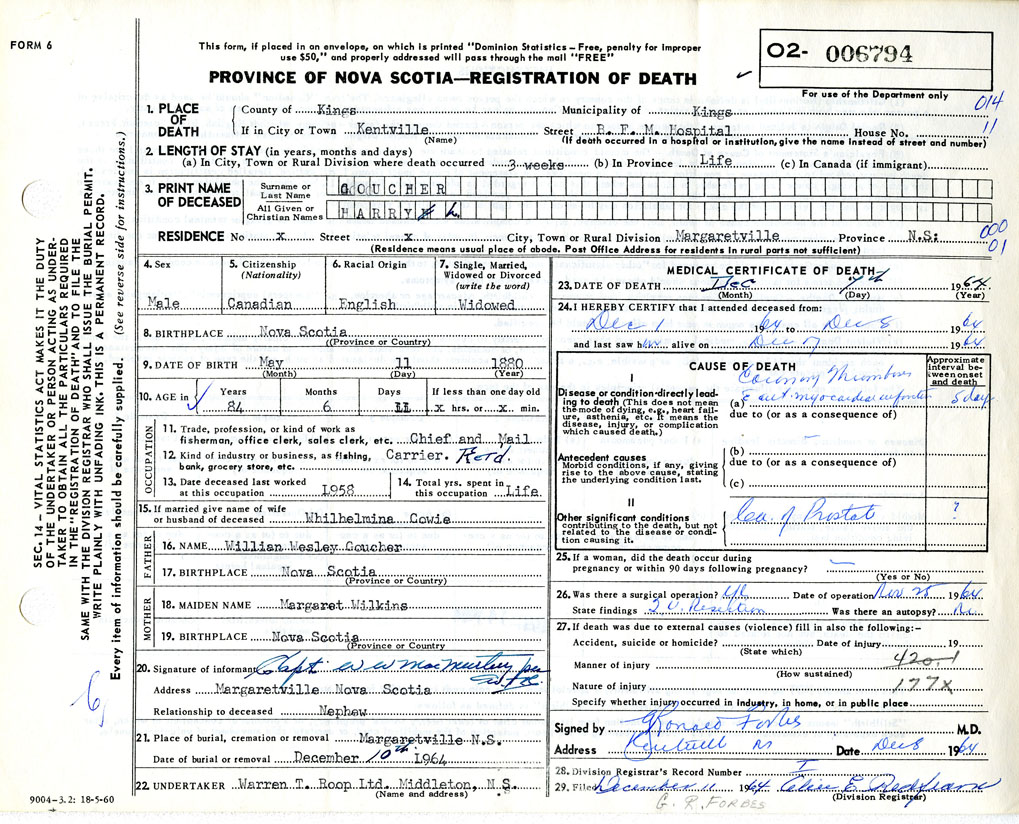 FORM 6
This form, if placed in an envelope, on which is printed "Dominion Statistics – Free, penalty for improper
use $50," and properly addressed will pass through the mail "FREE"
PROVINCE OF NOVA SCOTIA—REGISTRATION OF DEATH
O2- 006794
For use of the Department only
014
11
1. PLACE OF DEATH
County of Kings Municipality of Kings
If in City or Town Kentville Street B. F. M. Hospital House No.
(Name) (If death occurred in a hospital or institution, give the name instead of street and number)
2. LENGTH OF STAY (in years, months and days)
(a) In City, Town or Rural Division where death occurred 3 weeks (b) In Province Life (c) In Canada (if immigrant)
3. PRINT NAME OF DECEASED
Surname or Last Name GOUCHER
All Given or Christian Names HARRY
RESIDENCE No x Street x City, Town or Rural Division Margaretville Province N.S:
000
01
(Residence means usual place of abode. Post Office Address for residents in rural parts not sufficient)
4. Sex
Male
5. Citizenship
(Nationality)
Canadian
6. Racial Origin
English
7. Single, Married, Widowed or Divorced
(write the word)
Widowed
8. BIRTHPLACE Nova Scotia
((Province or Country)
9. DATE OF BIRTH May 11 1880
(Month) (Day) (Year)
10. AGE in
Years Months Days If less than one day old
84 6 11 x hrs. or x min.
OCCUPATION
11. Trade, profession, or kind of work as
fisherman, office clerk, sales clerk, etc. Chief and Mail
12. Kind of industry or business, as fishing, Carrier. Retd.
bank, grocery store, etc.
13. Date deceased last worked
at this occupation 1958
14. Total yrs. spent in
this occupation Life.
15. If married give name of wife
or husband of deceased Whilhelmina Cowie
FATHER
16. NAME Willian Wesley Goucher
17. BIRTHPLACE Nova Scotia
(Province or Country)
MOTHER
18. MAIDEN NAME Margaret Wilkins
19. BIRTHPLACE Nova Scotia
(Province or Country
20. Signature of informant Capt W W
Address Margaretville Nova Scotia
Relationship to deceased Nephew
21. Place of burial, cremation or removal Margaretville N.S.
Date of burial or removal December 10th 1964
22. UNDERTAKER Warren T. Roop Ltd. Middleton, N.S.
(Name and address)
MEDICAL CERTIFICATE OF DEATH
23. DATE OF DEATH Dec 7th 1964
(Month) (Day) (Year)
24. I HEREBY CERTIFY that I attended deceased from:
Dec 1 64 to Dec 8 64
and last saw him alive on Dec 7 1964
CAUSE OF DEATH
Approximate interval between onset and death
I
Disease or condition directly leading to death (This does not mean the mode of dying, e.g., heart failure, asthenia, etc. It means the disease, injury, or complication which caused death.)
Coronary Thrombosis
(a) myocardial 5 days
due to (or as a consequence of)
Antecedent causes
Morbid conditions, if any, giving rise to the above cause, stating the underlying condition last.
(b)
due to (or as a consequence of)
(c)
II
Other significant conditions
contributing to the death, but not related to the disease or condition causing it.
Ca. of Prostate ?
25. If a woman, did the death occur during
pregnancy or within 90 days following pregnancy? —
(Yes or No)
26. Was there a surgical operation? Date of operation Nov 25 1964
State findings Was there an autopsy? No
27. If death was due to external causes (violence) fill in also the following:–
Accident, suicide or homicide? Date of injury 19
(State which)
Manner of injury 420.1
(How sustained)
Nature of injury 177X
Specify whether injury occurred in industry, in home, or in public place
Signed by G Ronald Forbes M.D.
Address Kentville NS Date Dec 8 1964
28. Division Registrar's Record Number I
29. Filed December 11 1964
(Division Registrar)
G. R. FORBES
SEC. 14 – VITAL STATISTICS ACT MAKES IT THE DUTY
OF THE UNDERTAKER OR PERSON ACTING AS UNDER-
TAKER TO OBTAIN ALL THE PARTICULARS REQUIRED
IN THE "REGISTRATION OF DEATH" AND TO FILE THE
SAME WITH THE DIVISION REGISTRAR WHO SHALL ISSUE THE BURIAL PERMIT.
WRITE PLAINLY WITH UNFADING INK. THIS IS A PERMANENT RECORD.
Every item of information should be carefully supplied. (See reverse side for instructions.)
6
9004-3.2: 18-5-60